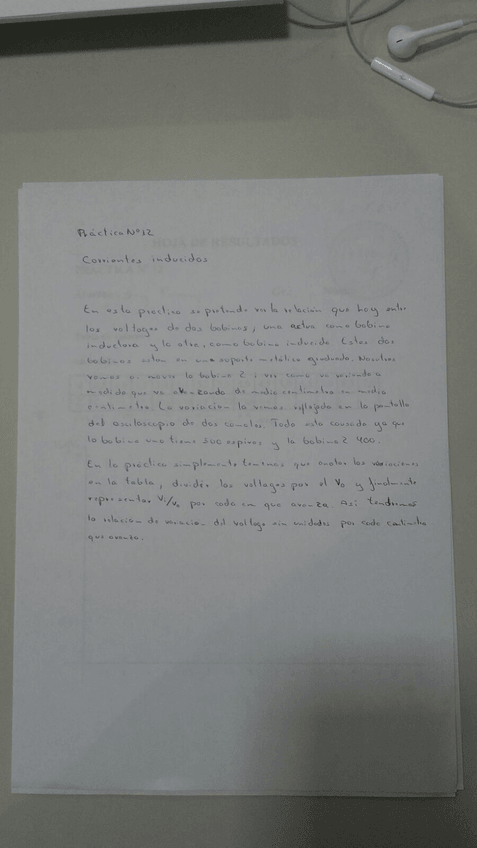 Práctica Nº12
Corrientes inducidas
En esta práctica se pretende ver la relación que hay entre
los voltages de dos bobinas, una actua como bobina
inductora y la otra, como bobina inducida. Estas dos
bobinas estan en un soporte metálico graduado. Nosotros
vamos a mover la bobina 2 y ver como va variando a
medida que va avanzando de medio centimetro en medio
centimetro. La variación la vemos reflejada en la pantalla
del osciloscopio de dos canales. Todo esto causado ya que
la bobina uno tiene 500 espiras y la bobina 2 400.
En la práctica simplemente tenemos que anotar las variaciones
en la tabla, dividir los voltages por el V0 y finalmente
representar Vi/V0 por cada cm que avanza. Asi tendremos
la relación de variación del voltage sin unidades por cada centimetro
que avanza.